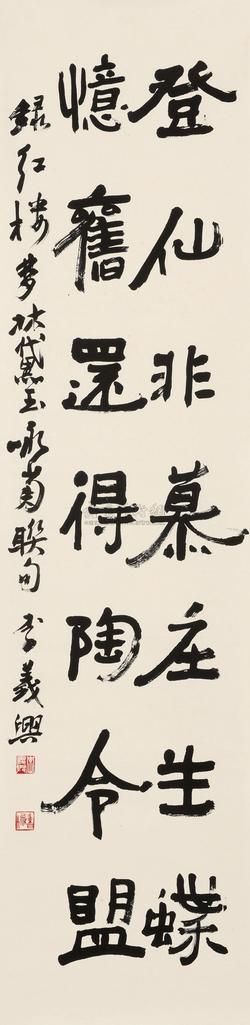 登仙非慕庄生蝶
憶舊還得陶令盟
録红楼夢林黛玉咏菊聯句 李義興